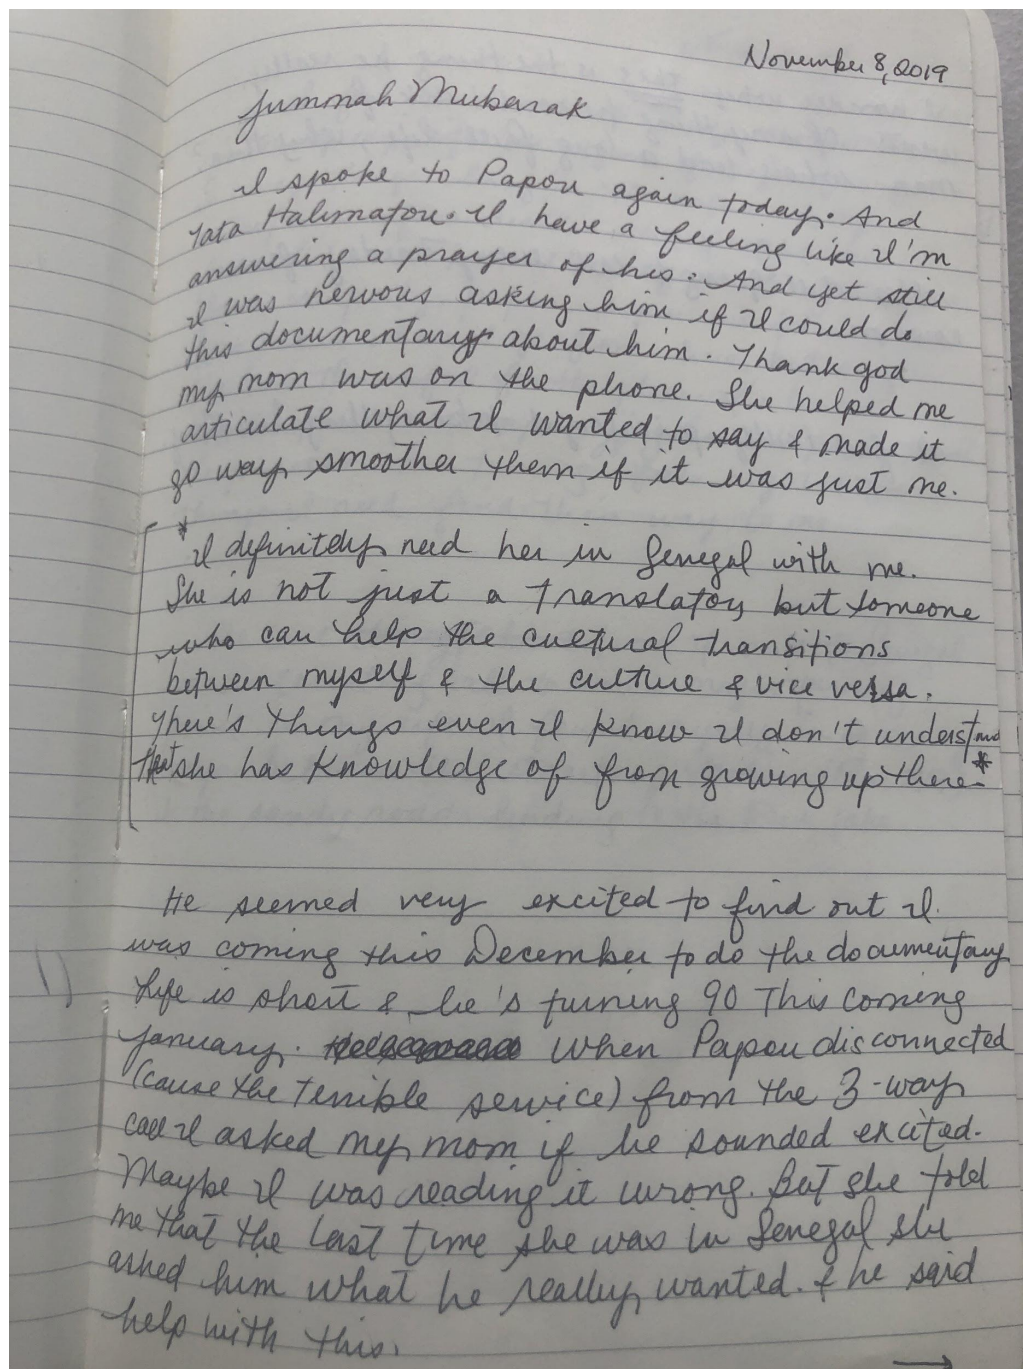 November 8, 2019
Jummah Mubarak
I spoke to Papou again today. And
Tata Halimatou. I have a feeling like I'm
answering a prayer of his. And yet still
I was nervous asking him if I could do
this documentary about him. Thank god
my mom was on the phone. She helped me
articulate what I wanted to say & made it
go way smoother them if it was just me.
*I definitely need her in Senegal with me.
She is not just a translator, but someone
who can help the cultural transitions
between myself & the culture & vice versa.
There's things even I know I don't understand
that she has knowledge of from growing up there.*
He seemed very excited to find out I
was coming this December to do the documentary
Life is short & he's turning 90 This coming
January. when Papou disconnected
(cause the terrible service) from the 3-way
call I asked my mom if he sounded excited.
Maybe I was reading it wrong. But she told
me that the last time she was in Senegal she
asked him what he really wanted. & he said
help with this.
→